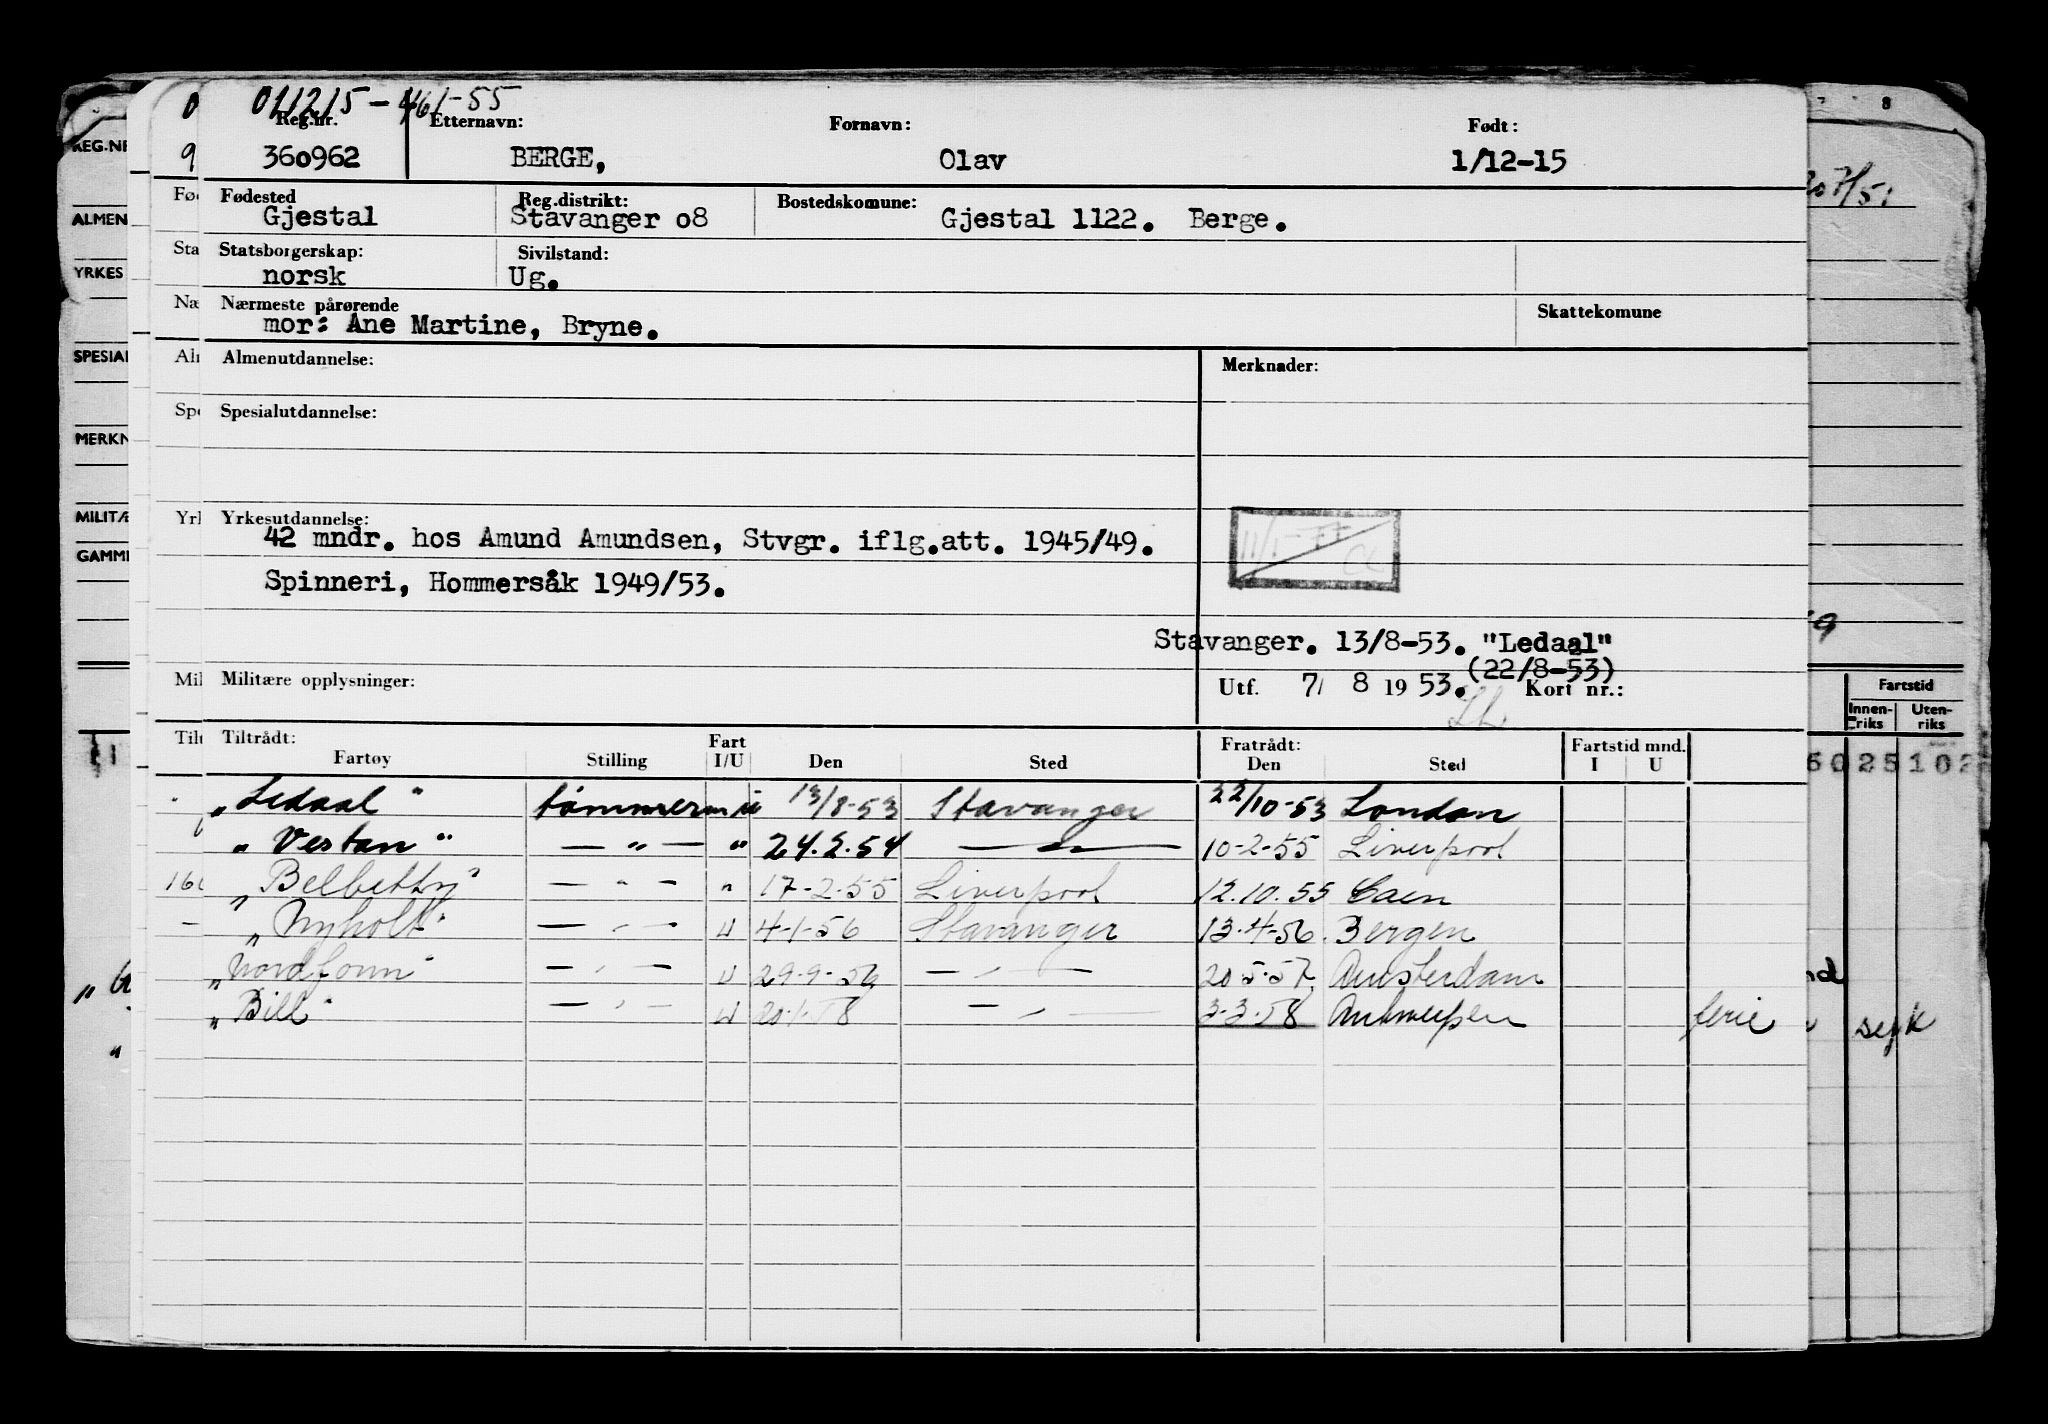 011215-461-55
Reg.nr. Etternavn: Fornavn: Født:
360962 BERGE, Olav 1/12-15
Fødested Reg.distrikt: Bostedskomune:
Gjestal Stavanger o8 Gjestal 1122. Berge.
Statsborgerskap: Sivilstand:
norsk Ug.
Nærmeste pårørende Skattekomune
mor: Ane Martine, Bryne.
Almenutdannelse: Merknader:
Spesialutdannelse:
Yrkesutdannelse:
42 mndr. hos Amund Amundsen, Stvgr. iflg.att. 1945/49.
11/1-77 CL
Spinneri, Hommersåk 1949/53.
Stavanger. 13/8-53. "Ledaal"
(22/8-53)
Militære opplysninger: Utf. 7/ 8 19 53. Kort nr.:
Tiltrådt: Fart Fratrådt: Fartstid mnd.
Fartøy Stilling I/U Den Sted Den Sted I U
"Ledaal" tømmerm u 13/8-53 Stavanger 22/10-53 London
"Vestan" — " — " 24.2.54 — " — 10-2-55 Liverpool
"Belbetty" — " — " 17-2-55 Liverpool 12.10.55 Caen
"Nyholt" — " — U 4-1-56 Stavanger 13-4-56. Bergen
"Nordfonn" — " — U 29-9-56 — " — 20 5-57. Amsterdam
"Bill" — " — U 20-1-58 — " — 3-3-58 Antwerpen ferie
REG.NR
ALMEN
YRKES
SPESIAL
MERKN
MILITÆ
GAMME
8
Fartstid
Innen-riks Uten-riks
60 25 102